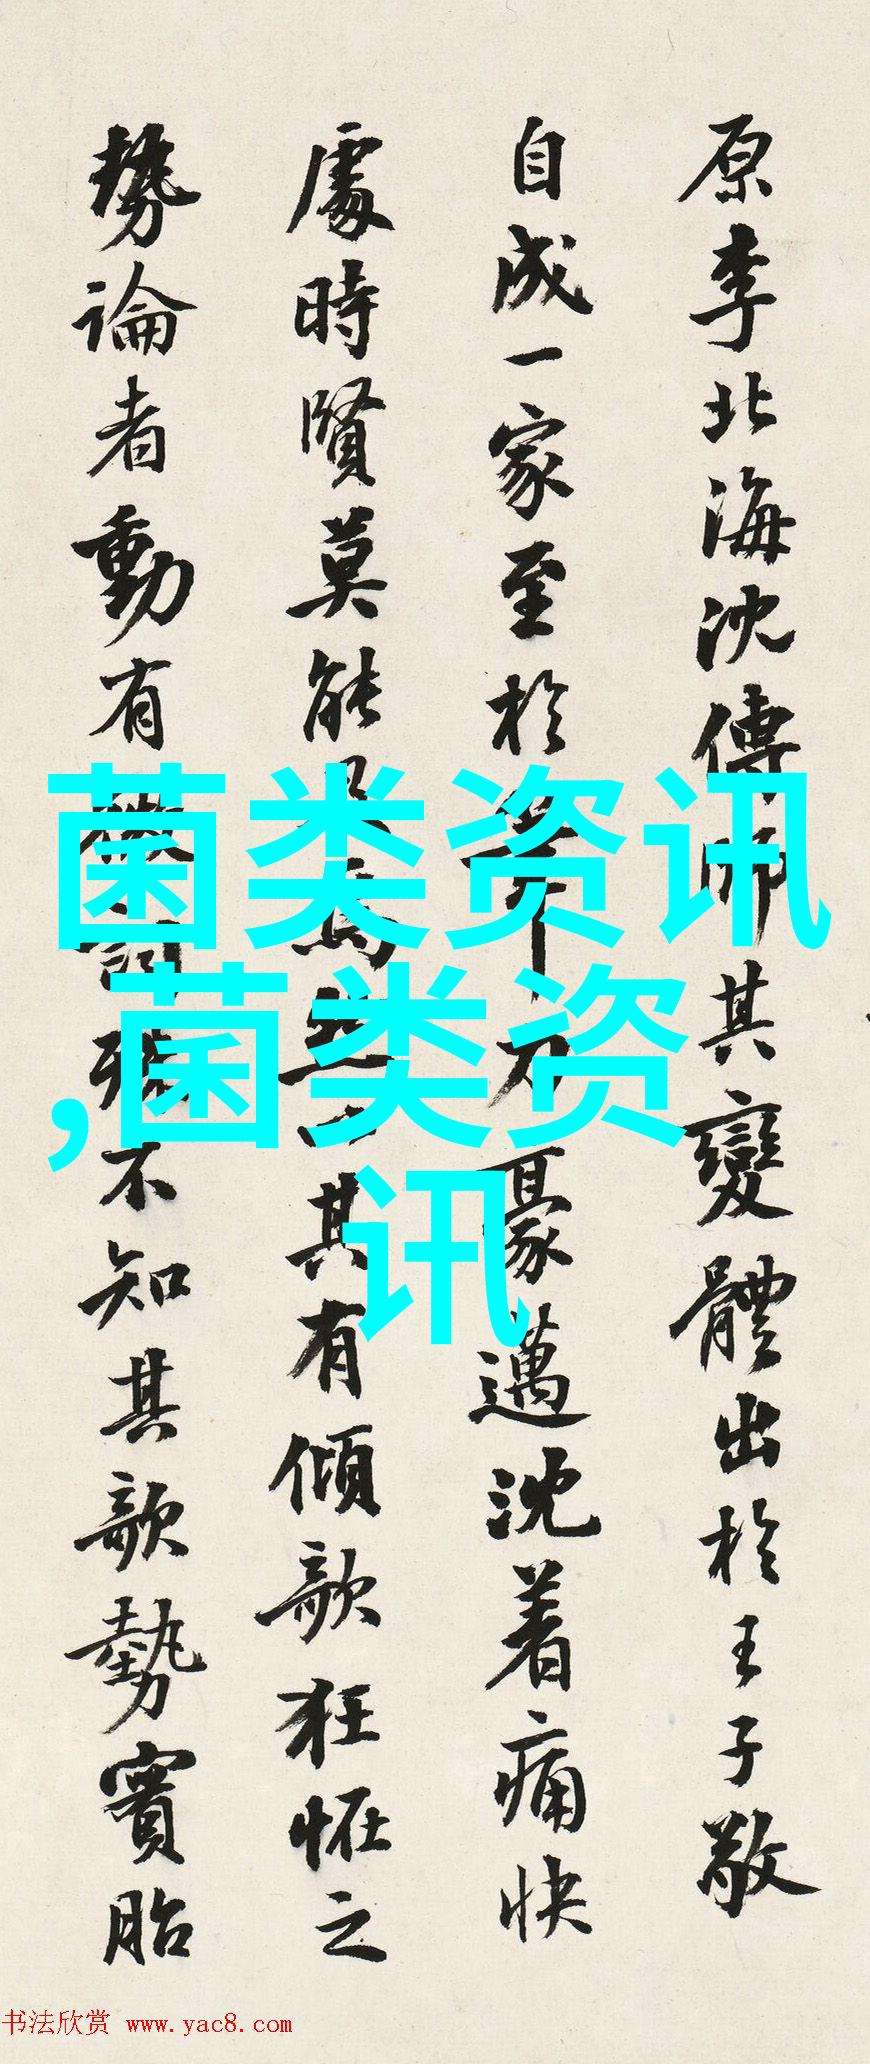 原李北海沈傳師其變體出於王子敬
自成一家至於 力豪邁沈着痛快
處時賢莫能 其有傾欹狂怪之
勢論者動有 不知其欹勢實胎
菌类资讯
,菌类资
讯
书法欣赏 www.yac8.com